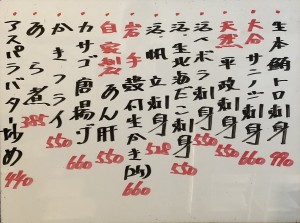 生本鮪トロ刺身 990
大分 サンノジ刺身 660
天然 平政刺身 550
活〆ボラ刺身 550
刺身 550
帆立刺身 528
岩手 殻付生かき 660
自家製 あん肝 550
カサゴ唐揚げ 660
かきフライ 550
あら煮 385
アスパラバター炒め 440